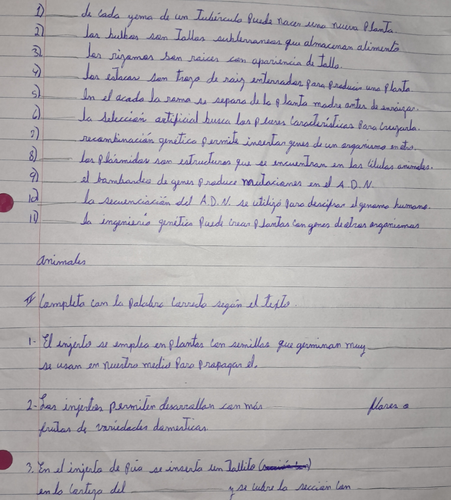 1) de cada yema de un Tubérculo Puede nacer una nueva Planta.
2) los bulbos son Tallos subterraneos que almacenan alimento.
3) los rizomas son raices con apariencia de Tallo.
4) las estacas son trozo de raiz enterrados para producir una planta
5) En el acodo la rama se separa de la planta madre antes de enraizar.
6) la selección artificial busca las peores características Para cruzarla.
7) recombinación genetica permite insertar genes de un organismo en otro.
8) los plásmidos son estructuras que se encuentran en las células animales.
9) el bombardeo de genes produce mutaciones en el A.D.N.
10) la secuenciación del A.D.N. se utilizó para descifrar el genoma humano.
11) la ingeniería genética Puede crear plantas con genes de otros organismos
animales
II Completa con la Palabra Correcta según el texto.
1- El injerto se emplea en plantas con semillas que germinan muy
se usan en nuestro medio Para propagar el.
2- Los injertos permiten desarrollar con más flores o
frutas de variedades domesticas.
3. En el injerto de púa se inserta un Tallito
en la corteza del y se cubre la sección con